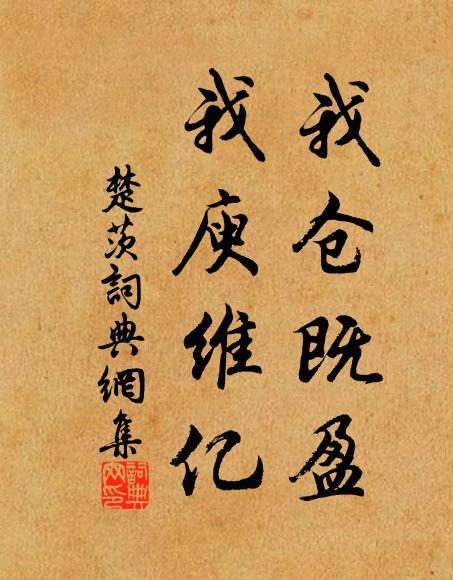 我仓既盈
我庾维亿
楚茨詞典網集
詞典網印